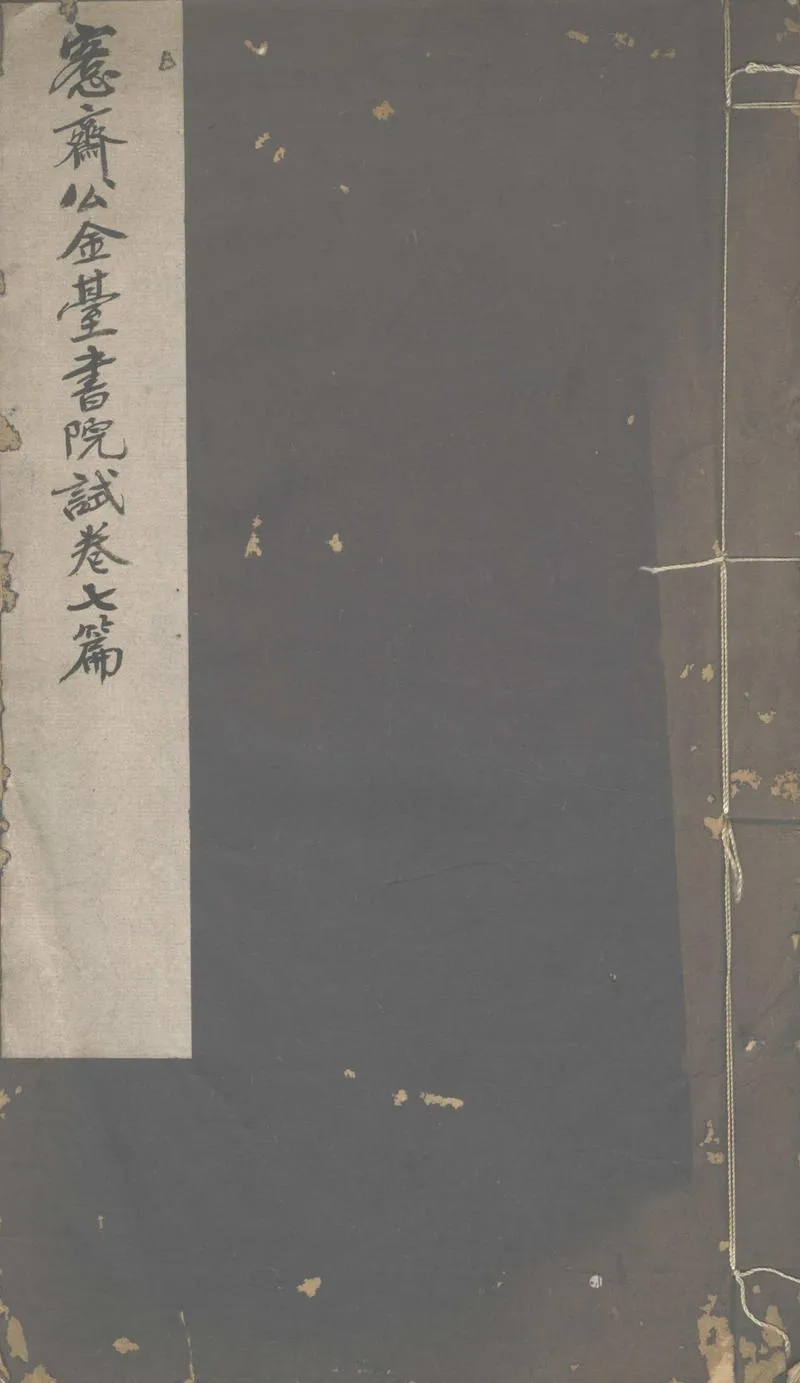 愙齋公金臺書院試卷七篇